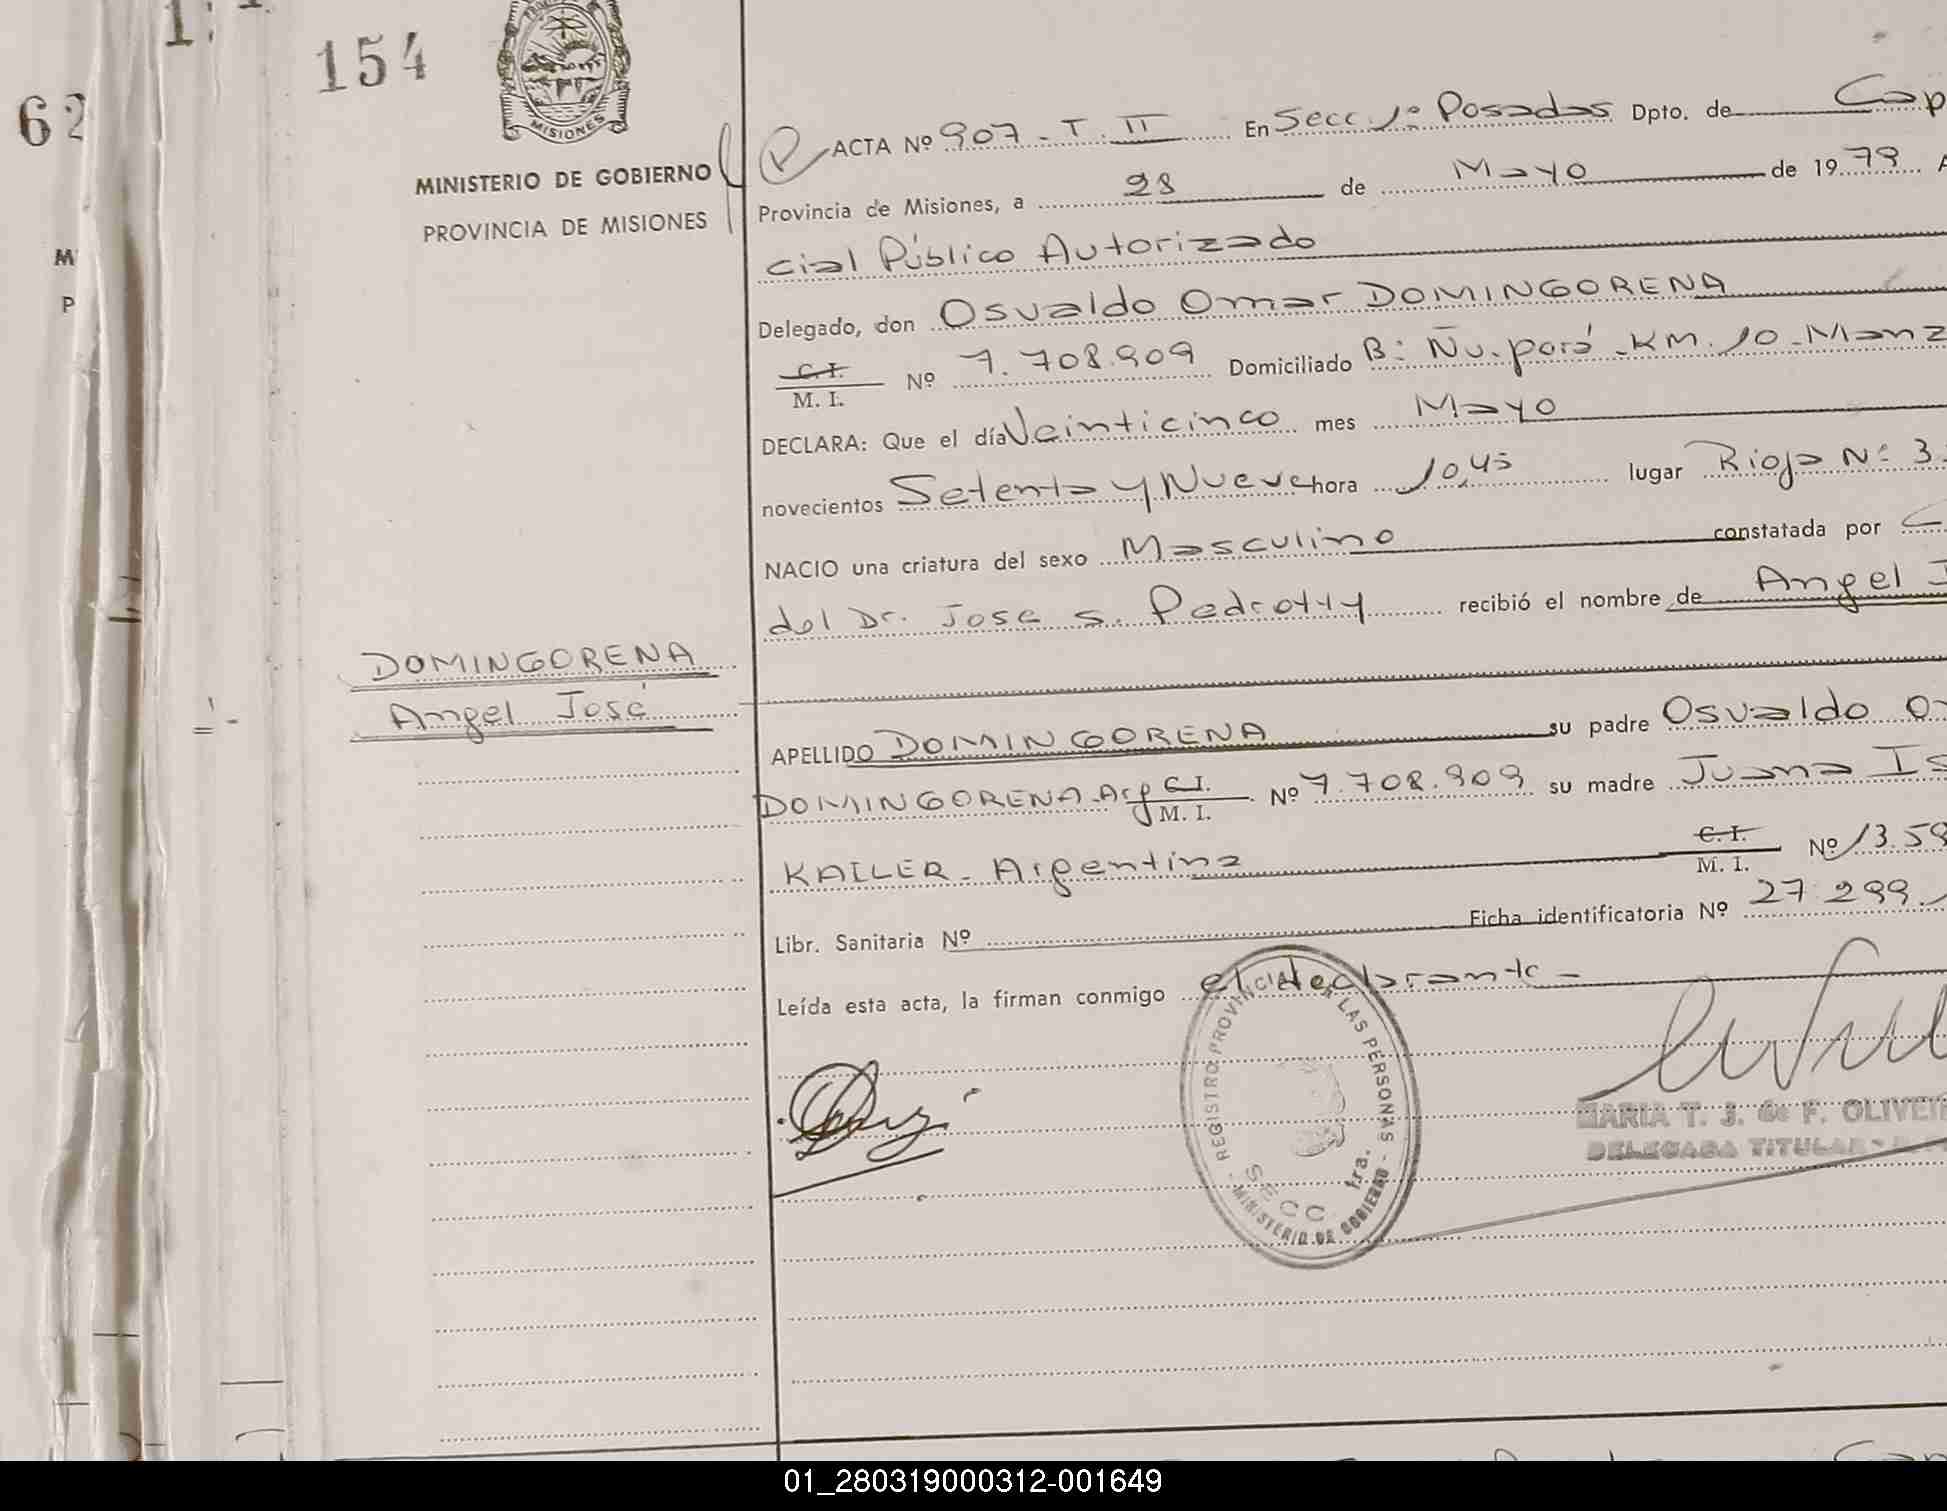 154
62
MISIONES
MINISTERIO DE GOBIERNO
PROVINCIA DE MISIONES
M
P
DOMINGORENA
Angel José
ACTA Nº 907 - T. II En Secc. 1º Posadas Dpto. de Cap
Provincia de Misiones, a 28 de Mayo de 1979 A
cial Público Autorizado
Delegado, don Osvaldo Omar DOMINGORENA
C.I. M. I. Nº 7.708.909 Domiciliado B: Ñu-porá-KM.10-Manz
DECLARA: Que el día Veinticinco mes Mayo
novecientos Setenta y Nueve hora 10,45 lugar Rioja Nº 3
NACIO una criatura del sexo Masculino constatada por C
del Dr. Jose S. Pedrotty recibió el nombre de Angel J
APELLIDO DOMINGORENA su padre Osvaldo O
DOMINGORENA-Arg C.I. M. I. Nº 7.708.909 su madre Juana Is
KAILER - Argentina C.I. M. I. Nº 13.59
Libr. Sanitaria Nº Ficha identificatoria Nº 27.299.
Leída esta acta, la firman conmigo el declarante -
REGISTRO PROVINCIAL LAS PERSONAS - MINISTERIO DE GOBIERNO -
SECC 1ra.
MARIA T. J. de F. OLIVEI
DELEGADA TITULAR
01_280319000312-001649